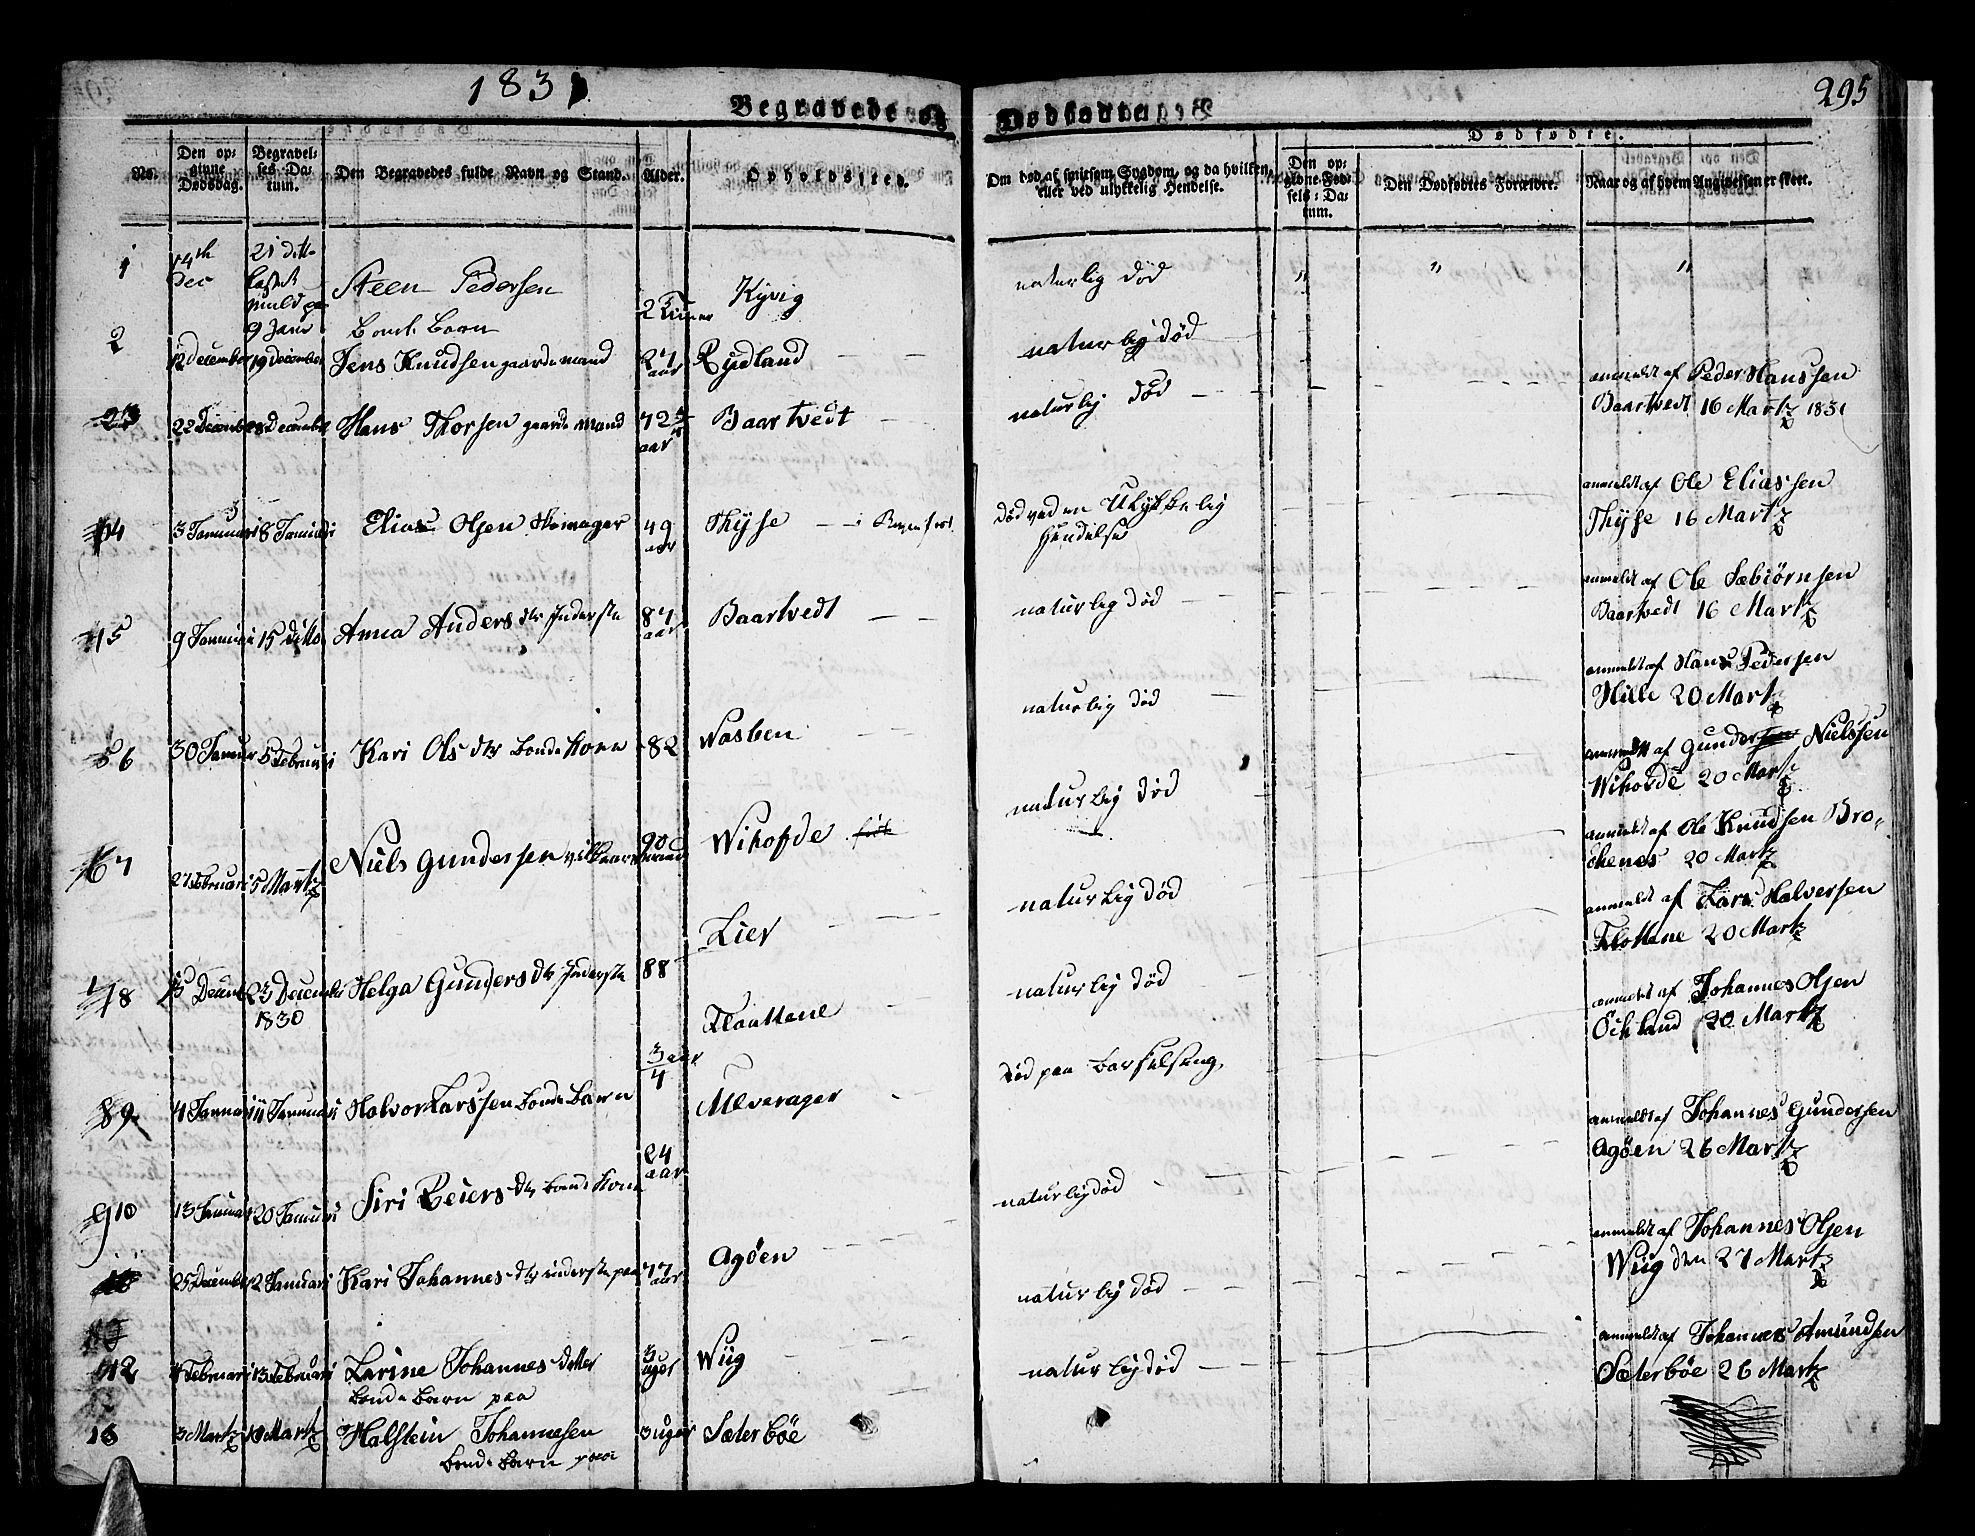 1831
295
Begravede og Dødfødte
Dødfødte.
No. Den opgivne Dødsdag. Begravelses Datum. Den Begravedes fulde Navn og Stand. Alder. Opholdssted. Om død af smitsom Sygdom, og da hvilken, eller ved ulykkelig Hendelse. Den opgivne Fødsels-Datum. Den Dødfødtes Forældre. Naar og af hvem Angivelsen er skeet.
1 14th Dec 21 ditto 9 Janu Steen Pedersen 2 Timer Kyvig naturlig død " " "
Bonde Barn
2 12 December 19 December Jens Knudsen gaardemand 27 aar Rydland naturlig død
3 22 December 28 December Hans Thorsen gaarde mand 72 aar Baartvedt naturlig død anmeldt af Peder Hanssen
Baartvedt 16 Martz 1831
4 3 Januari 8 Januari Elias Olsen Skomager 49 aar Thyse død ved en Ulykkelig Hendelse anmeldt af Ole Eliassen
Thyse 16 Martz
5 9 Januari 15 ditto Anna Anders dtr Inderste 87 aar Baartvedt naturlig død anmeldt af Ole Sæbiørnsen
Baartvedt 16 Martz
anmeldt af Hans Pedersen
Hille 20 Martz
6 30 Januar 5 Februari Kari Ols dtr Bonde Kone 82 Wasben naturlig død anmeldt af Gunder Nielssen
Wihofde 20 Martz
7 27 Februari 5 Martz Niels Gundersen 90 Wihofde naturlig død anmeldt af Ole Knudsen Bro-
ckenes 20 Martz
Lier naturlig død anmeldt af Lars Halversen
Flottene 20 Martz
8 15 Decemb 23 December 1830 Helga Gunders dtr Inderste 88 naturlig død anmeldt af Johannes Olsen
Flaattene Eckland 20 Martz
9 4 Januari 11 Januari Halvor Larssen Bonde Barn 3/4 aar Ulverager død paa Barselseng anmeldt af Johannes Gundersen
Agøen 26 Martz
10 13 Januari 20 Januari Siri Reiers dtr Bonde Kone 24 aar naturlig død
anmeldt af Johannes Olsen
25 December 2 Januari Kari Johannes dtr inderste paa 77 aar Agøen naturlig død Wiig den 27 Martz
anmeldt af Johannes Amundsen
12 4 Februari 13 Februari Larine Johannes datter 3 uger Wiig naturlig død Sæterbøe 26 Martz
Bonde Barn paa
13 3 Martz 10 Martz Halstein Johannesen 3 uger Sæterbøe
Bonde Barn paa